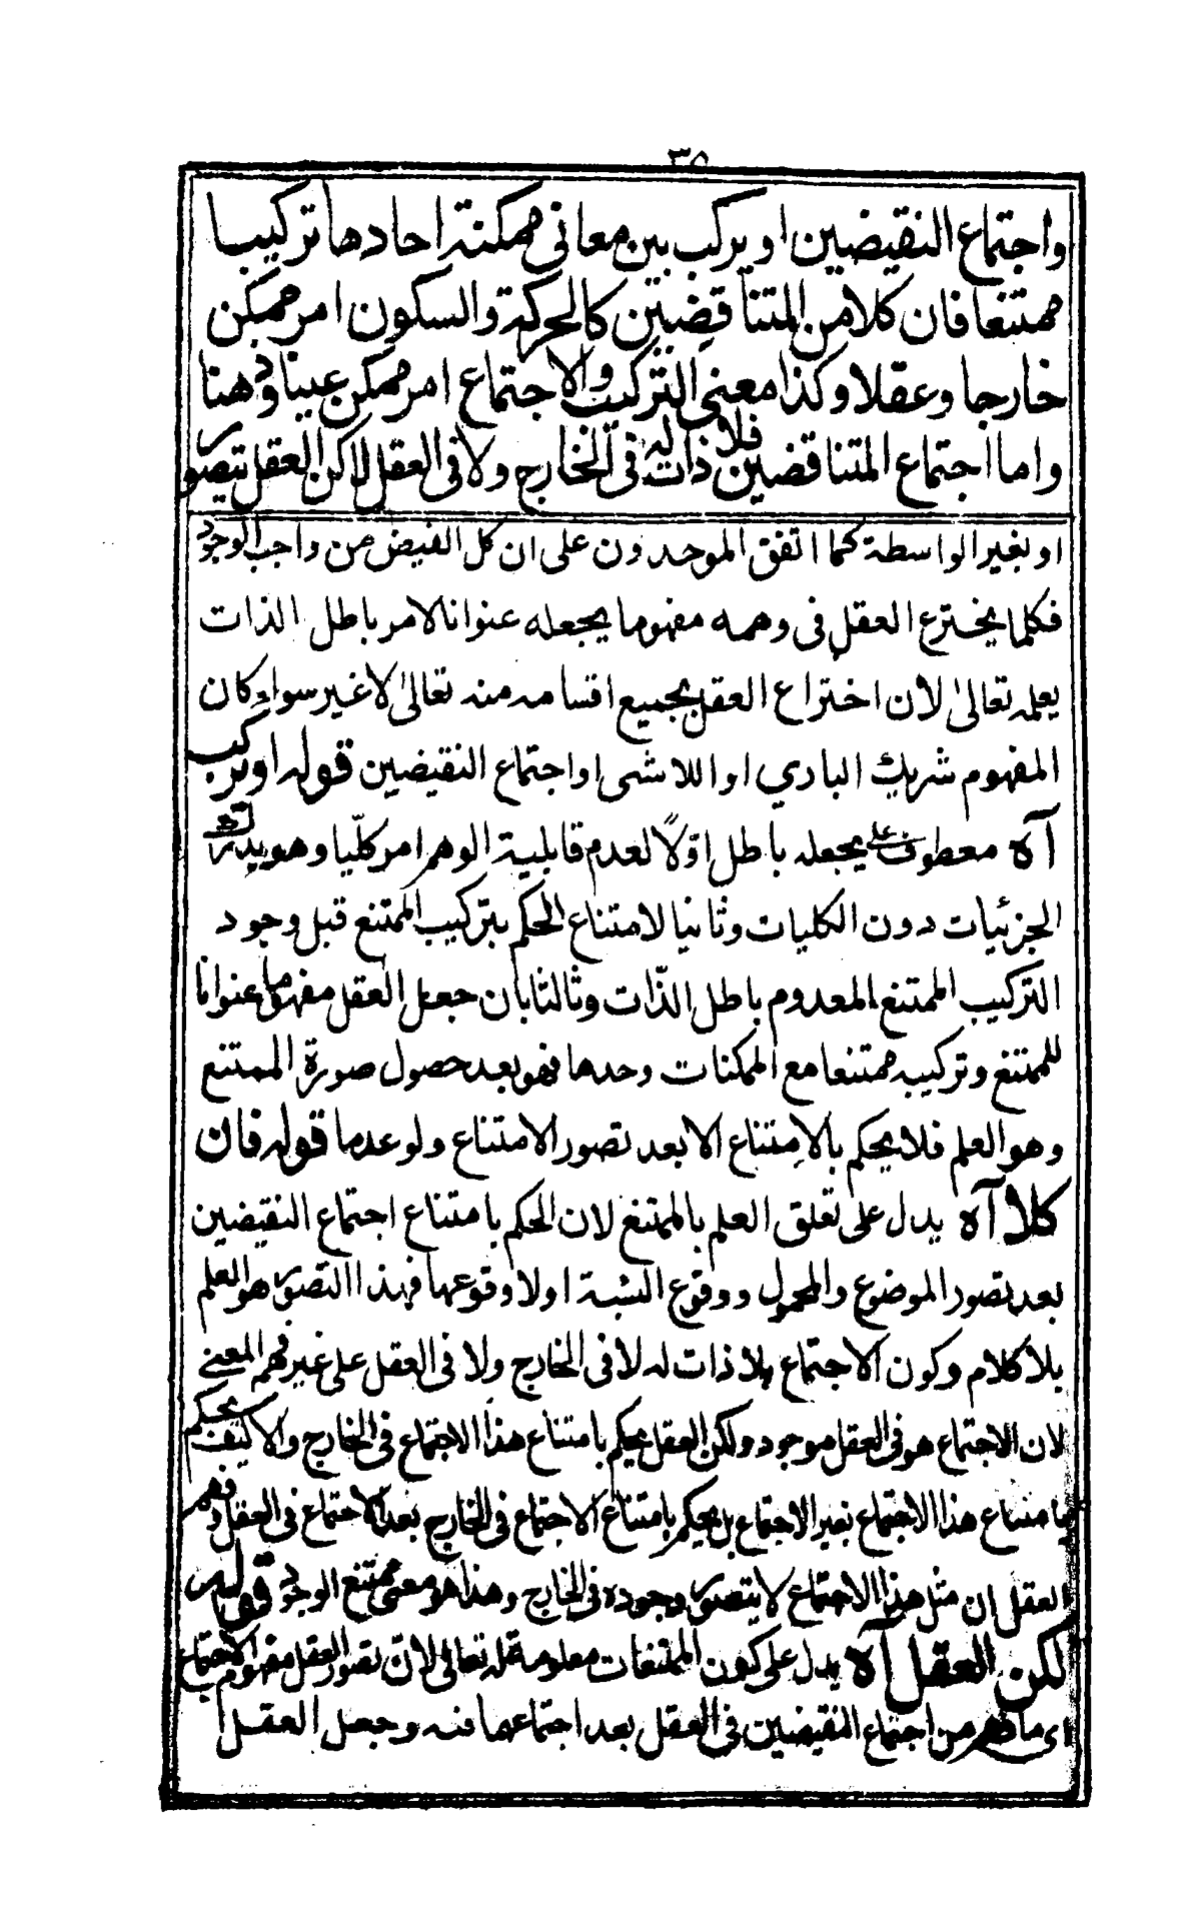 ٣٥
واجتماع النقيضين او يركب بين معانى ممكنة احادها تركيبا
ممتنعا فان كلا من المتناقضين كالحركة والسكون امر ممكن
خارجا وعقلا وكذا معنى التركيب والاجتماع امر ممكن عينا وذهنا
واما اجتماع المتناقضين فلا ذات له فى الخارج ولا فى العقل لاكن العقل يتصور
او بغير الواسطة كما اتفق الموحدون على ان كل الفيض من واجب الوجود
فكلما يخترع العقل فى وهمه مفهوما يجعله عنوانا لامر باطل الذات
يعلمه تعالىٰ لان اختراع العقل بجميع اقسامه منه تعالىٰ لا غير سواء كان
المفهوم شريك الباري او اللا شى او اجتماع النقيضين قوله او يركب
آه معطوف على يجعله باطل اوّلًا لعدم قابلية الوهم امر كلّيا وهو يدرك
الجزئيات دون الكليات وثانيا لامتناع الحكم بتركيب الممتنع قبل وجود
التركيب الممتنع المعدوم باطل الذّات وثالثا بان جعل العقل مفهوما عنوانا
للممتنع وتركيبه ممتنعا مع الممكنات وحدها فهو بعد حصول صورة الممتنع
وهو العلم فلا يحكم بالامتناع الا بعد تصور الامتناع ولو عدما قوله فان
كلا آه يدل على تعلق العلم بالممتنع لان الحكم بامتناع اجتماع النقيضين
بعد تصور الموضوع والمحمول ووقوع النسبة او لا وقوعها فهذا التصور هو العلم
بلا كلام وكون الاجتماع بلا ذات له لا فى الخارج ولا فى العقل على غير فهم المعنى
لان الاجتماع هو فى العقل موجود ولكن العقل يحكم بامتناع هذا الاجتماع فى الخارج والا كيف يحكم
بامتناع هذا الاجتماع بغير الاجتماع بل يحكم بامتناع الاجتماع فى الخارج بعد الاجتماع فى العقل وفهم
العقل ان مثل هذا الاجتماع لا يتصور وجوده فى الخارج وهذا هو معنى ممتنع الوجود قوله
لكن العقل آه يدل على كون الممتنعات معلومة له تعالى لان تصور العقل مفهوم الاجتماع
اى ما ظهر من اجتماع النقيضين فى العقل بعد اجتماعهما فيه وجعل العقل